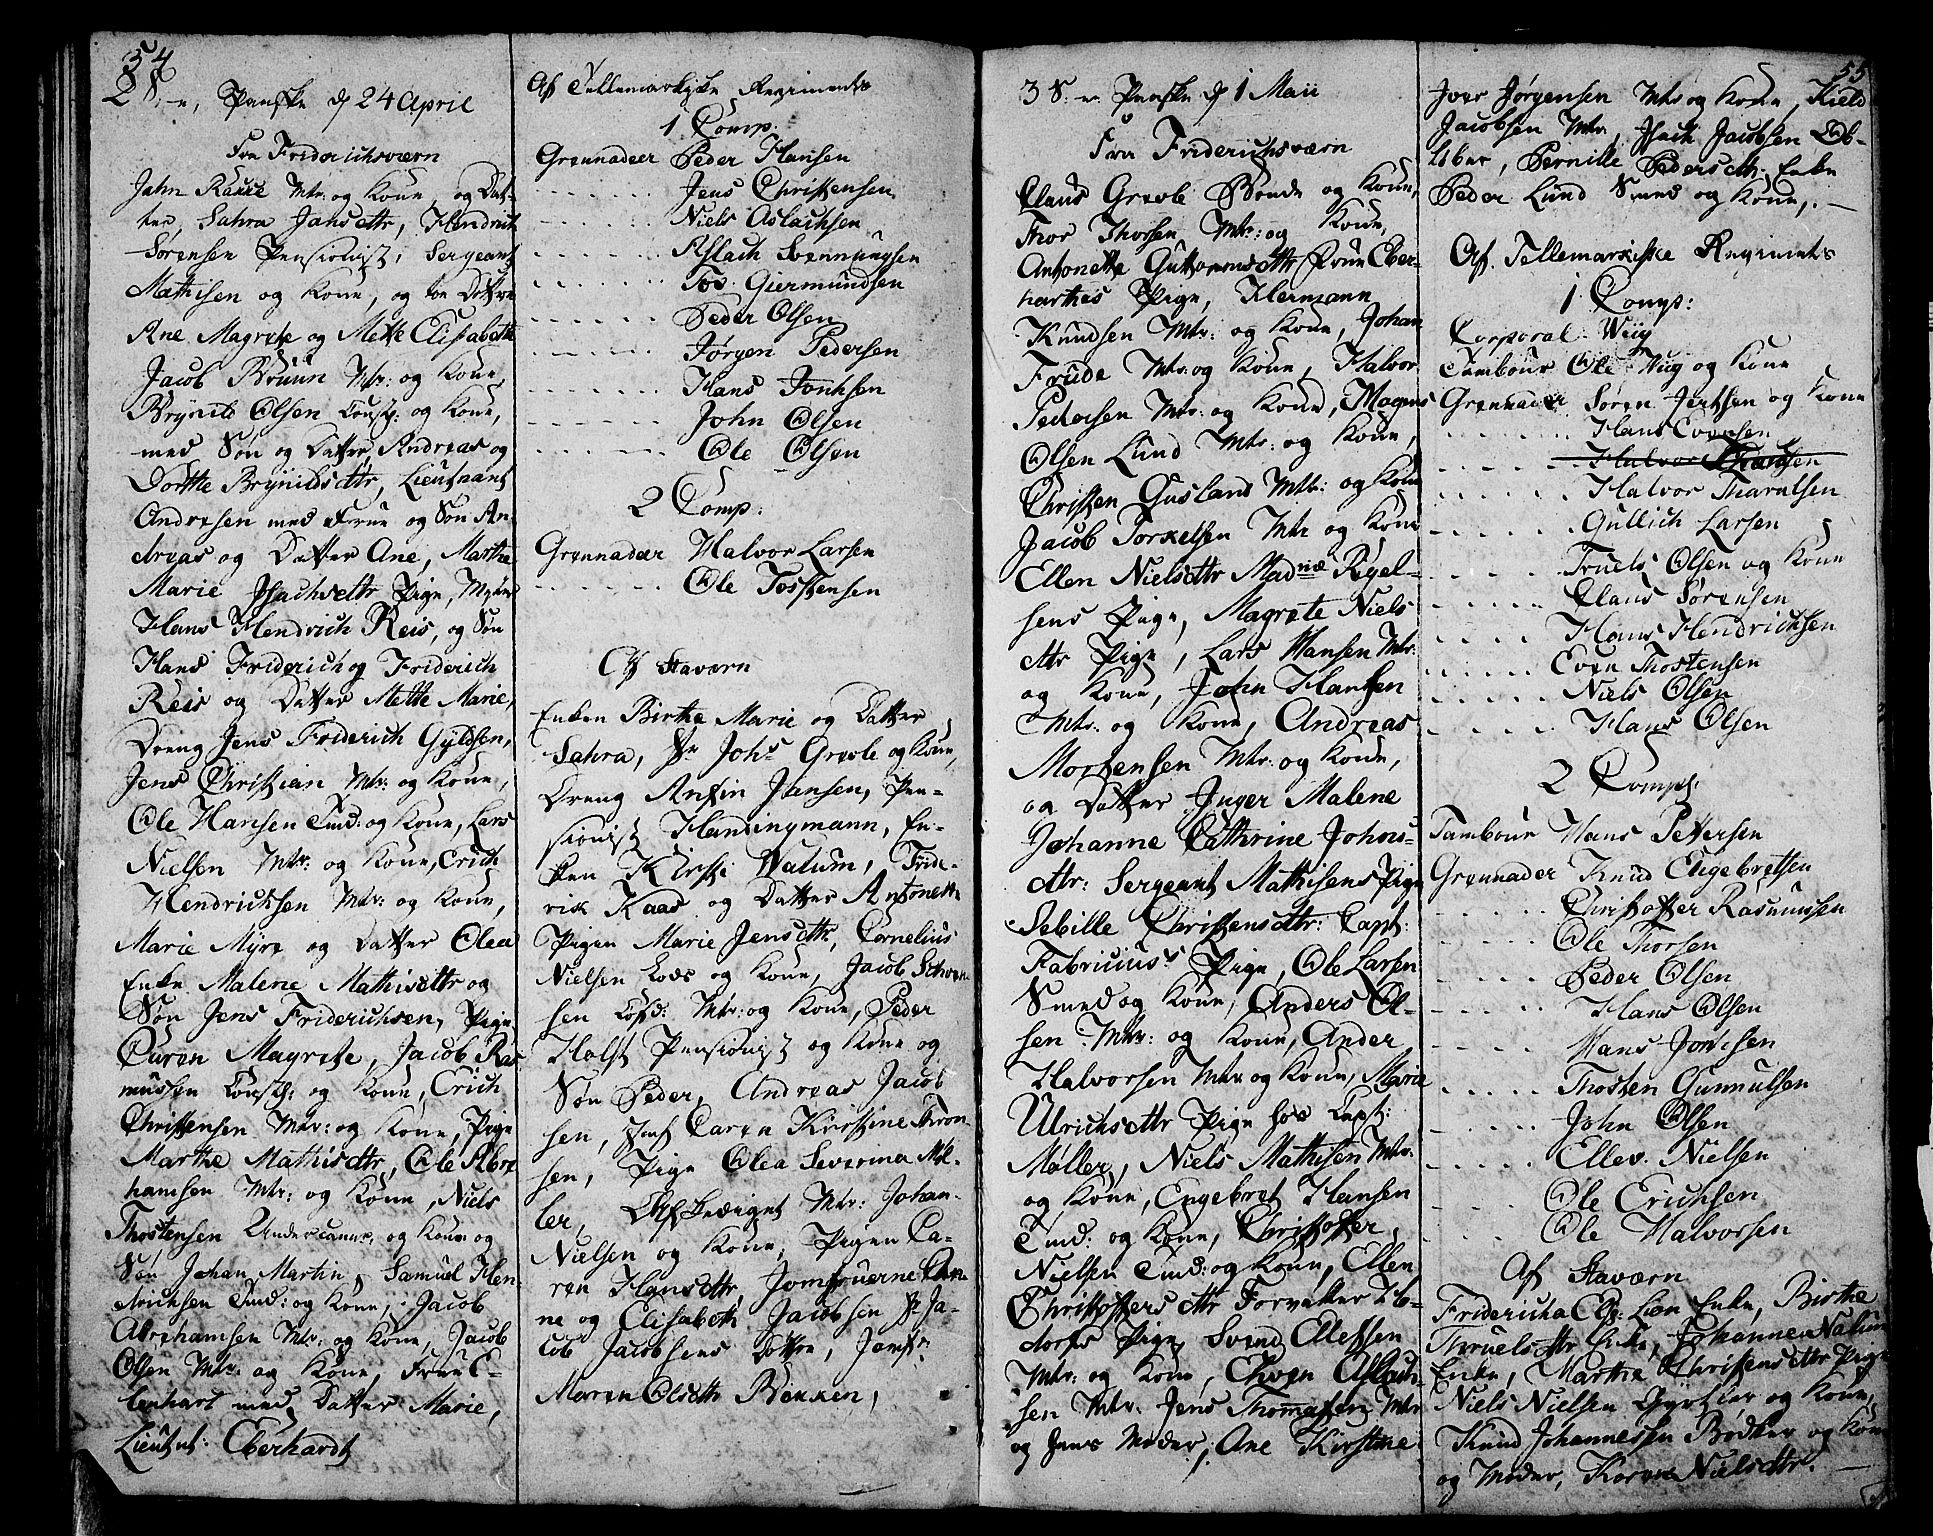 54
2 S. e. Paaske d 24 April
Fra Friderichsværn
Jahn Rause Mtr: og Kone, og Dat-
ter, Sahra Jahnsdttr, Hendrich
Sørensen Pensionist, Sergeant
Mathisen og Kone, og toe Døttre
Ane Magrete og Mette Elisabeth
Jacob Bruun Mtr: og Kone,
Brynild Olsen Const. og Kone,
med Søn og Datter Andreas og
Dorthe Brynildsdttr, Lieutnant
Andresen med Frue og Søn An-
dreas og Datter Ane, Marthe
Marie Isachsdttr Pige,
Hans Hendrich Reis, og Søn
Hans Friderich og Friderich
Reis og Datter Mette Marie,
Dreng Jens Friderich Gyldsen,
Jens Christian Mtr: og Kone,
Ole Hansen Tmd: og Kone, Lars
Nielsen Mtr: og Kone, Erich
Hendrichsen Mtr: og Kone,
Marie Myre og Datter Olea
Enke Malene Mathisdttr og
Søn Jens Friderichsen, Pige
Caren Magrete, Jacob Ras-
mussen Const: og Kone, Erich
Christensen Mtr: og Kone, Pige
Marthe Mathisdttr, Ole Abra-
hamsen Mtr: og Kone, Niels
Thostensen og Kone og
Søn Johan Martin, Samuel Hen-
drichsen Tmd: og Kone, Jacob
Abrahamsen Mtr: og Kone, Jacob
Olsen Mtr: og Kone, Frue E-
berhart med Datter Marie,
Lieutnt: Eberhardt
Af Tellemarkiske Regiments
1 Comp.
Grennadeer Peder Hansen
Jens Christensen
Niels Aslachsen
Aslach Svennungsen
Tos. Giermundsen
Peder Olsen
Jørgen Pedersen
Hans Jonsen
John Olsen
Ole Olsen
2 Comp:
Grennadeer Halvor Larsen
Ole Tostensen
Af Staværn
Enken Birthe Marie og Datter
Sahra, Sr Johs Greole og Kone,
Dreng Anfin Jansen, Pen-
sionist Handingmann, En-
ken Kirsti Valum, Fride-
rik Kaas og Datter Antonette
Pigen Marie Jensdttr, Cornelius
Nielsen Lods og Kone, Jacob
sen Mtr: og Kone, Peder
Holst Pensionist og Kone og
Søn Peder, Andreas Jacob
sen, Jmf Caren Kirstine Aron-
sen, Pige Olea Severina Møl-
ler, Mtr: Johan-
Nielsen og Kone, Pigen Ca-
ren Hansdttr, Jomfruerne Ane
ne og Elisabeth Jacobsen Sr Ja-
cob Jacobsens Døttre, Jomfr:
Maren Olsdtt Bekken,
3 S. e. Paaske d 1 Maii
Fra Friderichsværn
Claus Greole Bonde og Kone,
Thor Thorsen Mtr: og Kone,
Antonette Guttormsdttr Frue Eber-
hartes Pige, Hermann
Knudsen Mtr: og Kone, Johan
Frude Mtr: og Kone, Halvor
Pedersen Mtr: og Kone, Mogens
Olsen Lund Mtr: og Kone,
Christen Gusland Mtr: og Kone
Jacob Torkelsen Mtr og Kone
Ellen Nielsdttr Madme Rigel-
sens Pige, Magrete Niels
dttr Pige, Lars Hansen Mtr:
og Kone, John Hansen
Mtr: og Kone, Andreas
Mortensen Mtr: og Kone,
og Datter Inger Malene
Johanne Cathrine Johns-
dttr: Sergeant Mathisens Pige
Sebille Christensdttr: Capt:
Fabriciuss Pige, Ole Larsen
Smed og Kone, Anders Ol-
sen Mtr: og Kone, Ander
Halvorsen Mtr og Kone, Marie
Ulrichsdttr Pige hos Capt:
Møller, Niels Mathisen Mtr:
og Kone, Engebret Hansen
Tmd: og Kone, Christoffer
Nielsen Tmd: og Kone, Ellen
Christoffersdttr Forvalter Ho-
dorfs Pige, Svend Ellefsen
Mtr: og Kone, Even Aslach-
sen Mtr: Jens Thomasen Mtr
og hans Moder, Ane Kirstine
55
Iver Jørgensen Mtr og Kone, Kield
Jacobsen Mtr, Isach Jacobsen
Pernille Pedersdttr Enke
Peder Lund Smed og Kone,
Af Tellemarkiske Regiments
1 Comp:
Corporal Wiig
Tambour Ole Wiig og Kone
Grennader Søren Jertsen og Kone
Hans Evensen
Halvor
Halvor Tharalsen
Gullich Larsen
Truels Olsen og Kone
Claus Sørensen
Hans Hendrichsen
Even Thostensen
Niels Olsen
Hans Olsen
2 Comp:
Tambour Hans Pettersen
Grennader Knud Engebretsen
Christoffer Rasmussen
Ole Thorsen
Peder Olsen
Hans Olsen
Hans Jonsen
Thosten Gunnulsen
John Olsen
Ellev. Nielsen
Ole Erichsen
Ole Halvorsen
Af Staværn
Fridericha El: Lien Enke, Birthe
Thruelsdttr Enke, Johanne Nalum
Enke, Marthe Christensdttr Pige
Niels Nielsen Gjørtler og Kone,
Knud Johannessen Bødker og Kone
og Moder, Karen Nielsdttr.